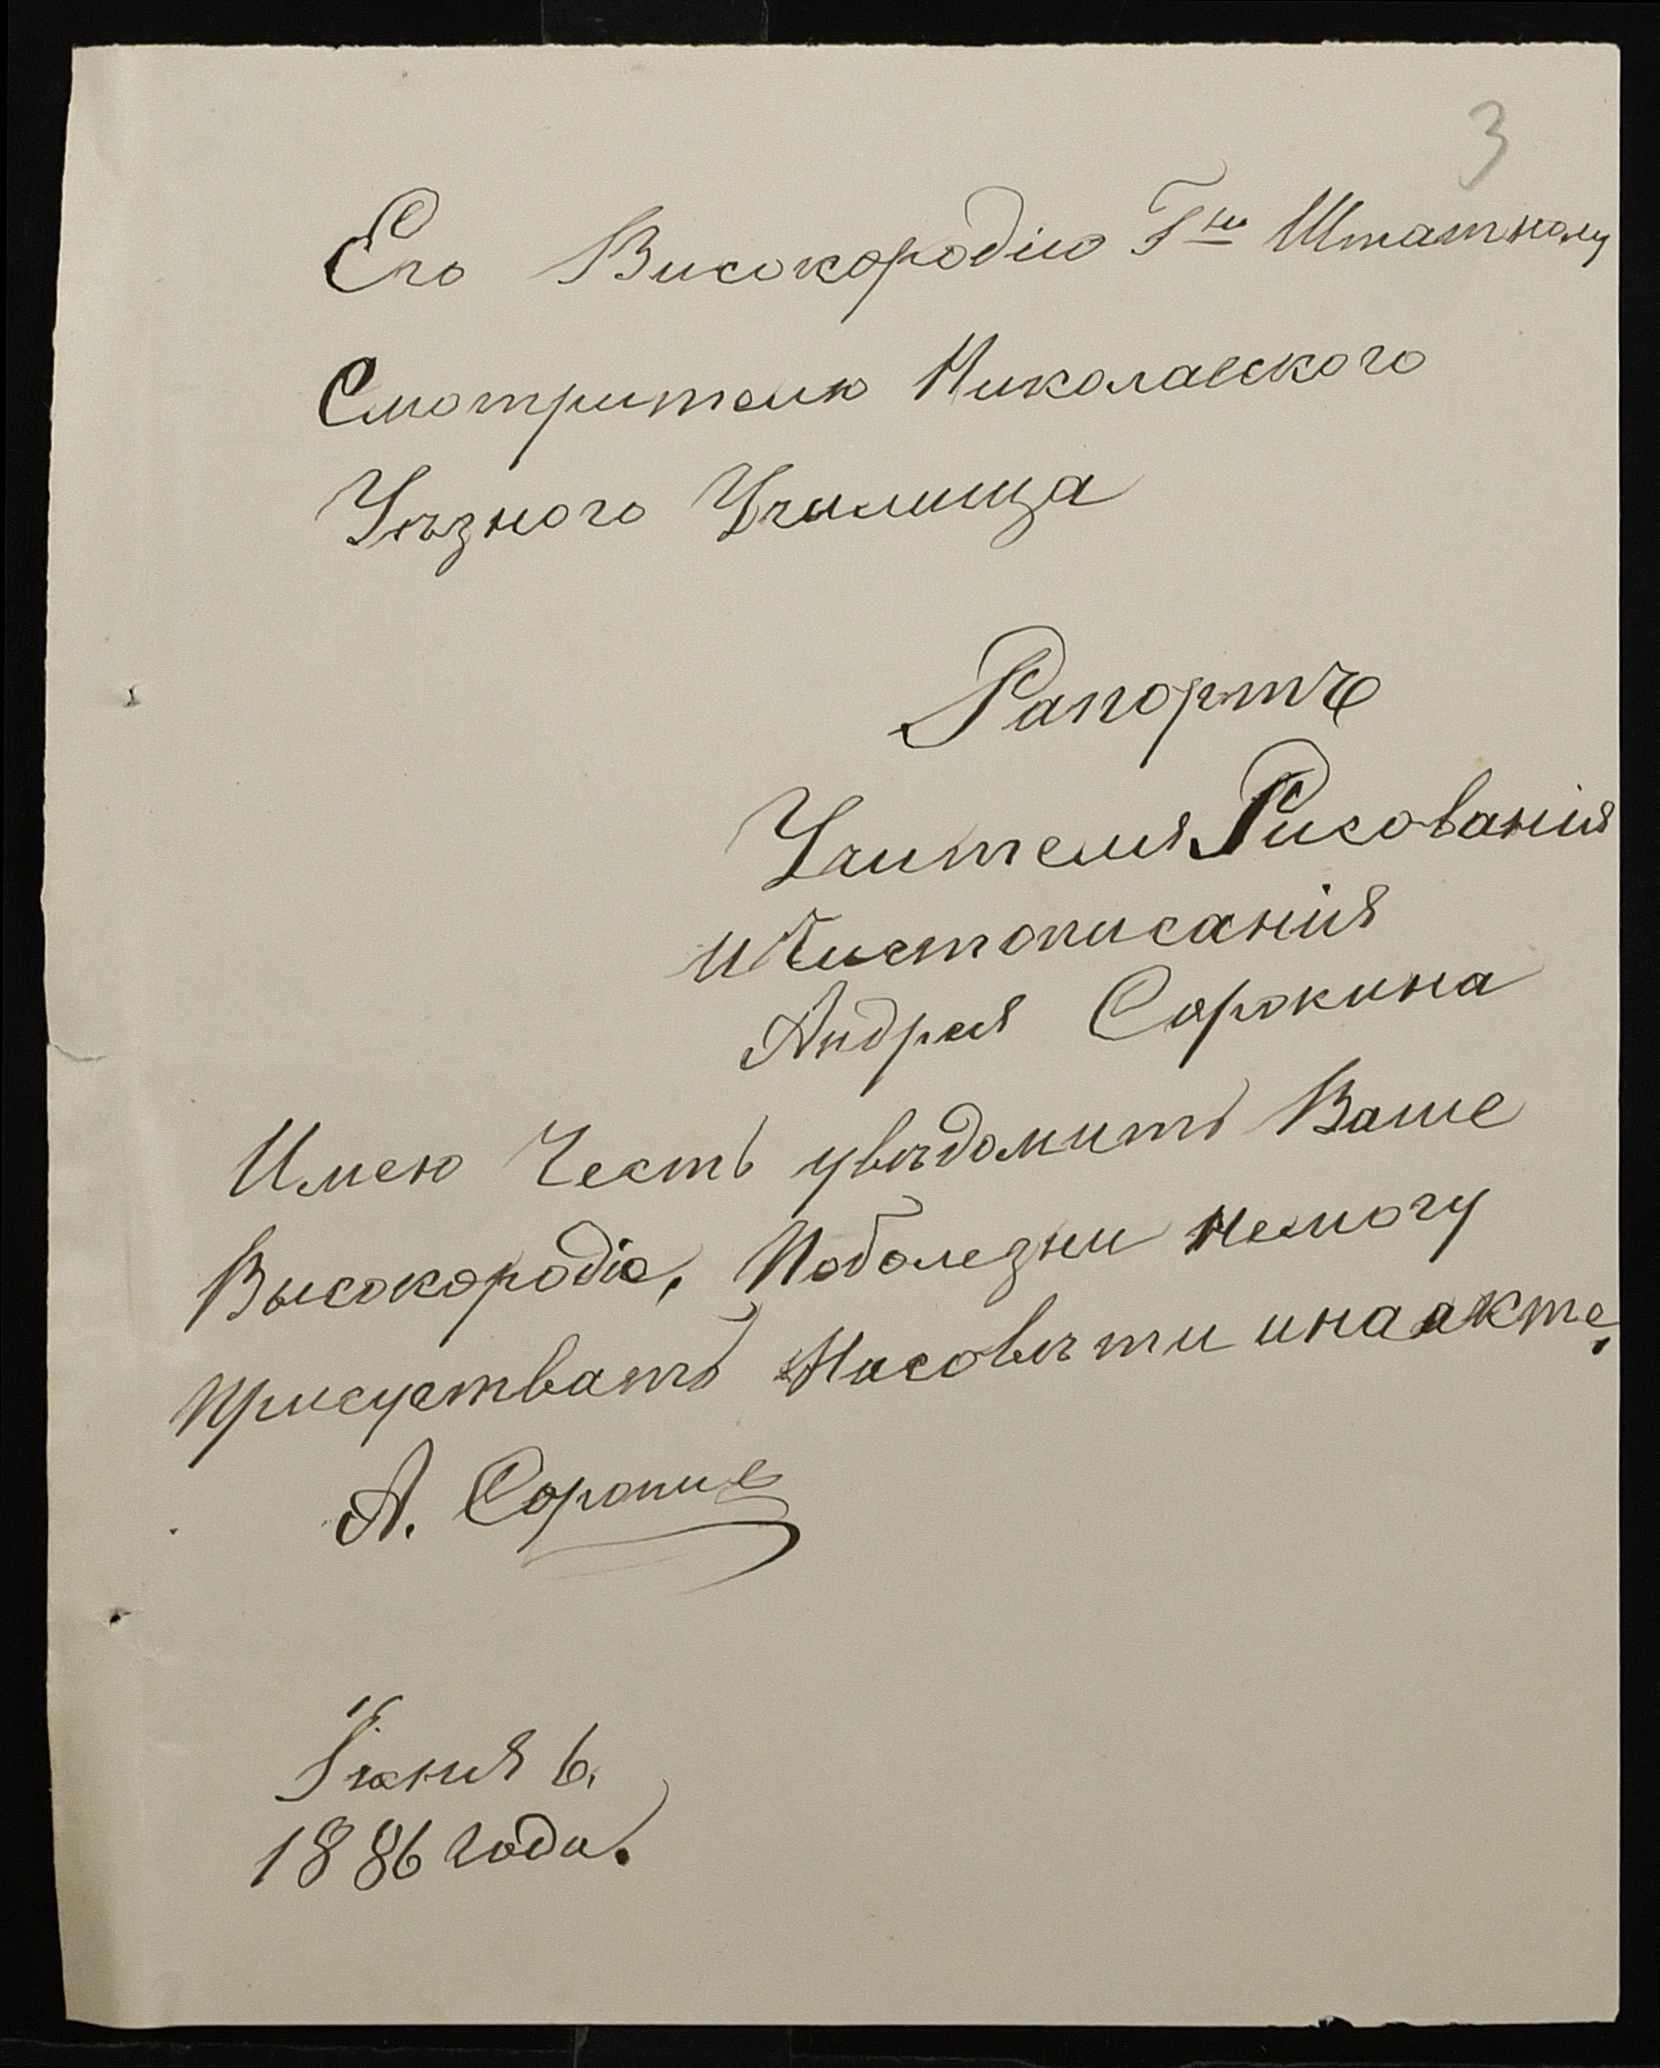 3
Его Високородію Гну Штатному
Смотрителю Николаеского
Уѣзного Училища
Рапортъ
Учителя Рисованія
и Чистописанія
Андрея Сорокина
Имею Честь увѣдомить Ваше
Высокородіе, Поболезни Немогу
Присуствать Насовѣти инаакте,
А. Сорокинъ
Іюния 6.
1886 года.